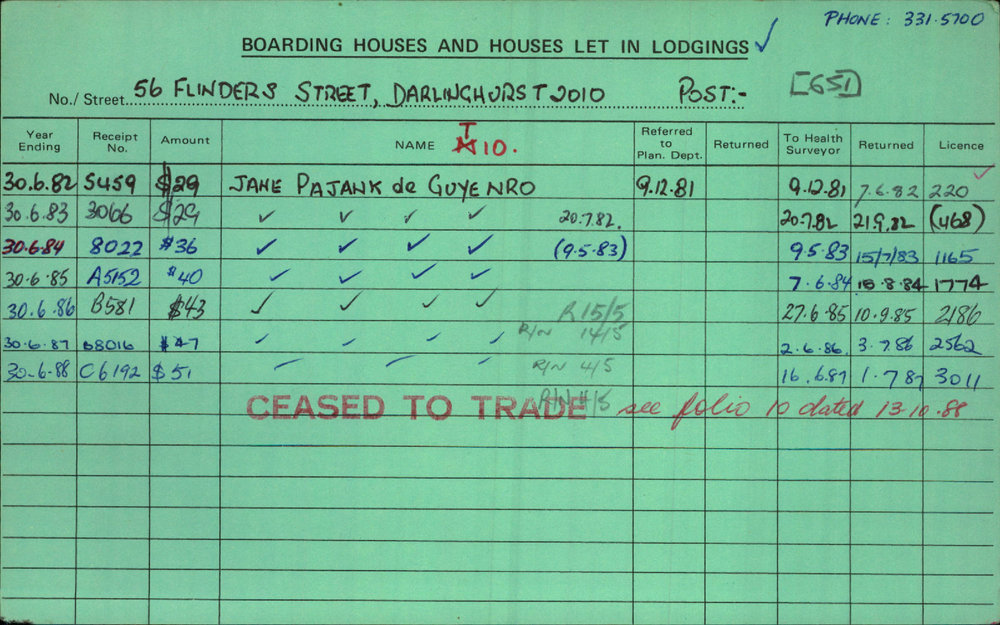 PHONE: 331-5700
BOARDING HOUSES AND HOUSES LET IN LODGINGS ✓
No./Street 56 FLINDERS STREET, DARLINGHURST 2010 POST:- [651]
Year Ending Receipt No. Amount NAME T 10. Referred to Plan. Dept. Returned To Health Surveyor Returned Licence
30.6.82 5459 $29 JANE PAJANK de GUYENRO 9.12.81 9.12.81 7.6.82 220 ✓
30.6.83 3066 $29 ✓ ✓ ✓ ✓ 20.7.82. 20.7.82 21.9.82 (468)
30.6.84 8022 $36 ✓ ✓ ✓ ✓ (9.5.83) 9.5.83 15/7/83 1165
30.6.85 A5152 $40 ✓ ✓ ✓ ✓ 7.6.84 8.84 1774
30.6.86 B581 $43 ✓ ✓ ✓ ✓ R 15/5 27.6.85 10.9.85 2186
30.6.87 B8016 $47 ✓ ✓ ✓ ✓ R/N 14/5 2.6.86. 3.7.86 2562
30-6-88 C6192 $51 R/N 4/5 16.6.87 1.7.87 3011
CEASED TO TRADE R/N 4/5 see folio 10 dated 13-10-88